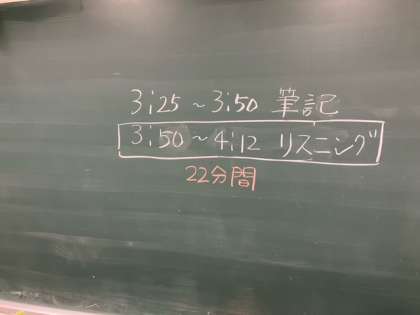 3:25 ~ 3:50 筆記
3:50 ~ 4:12 リスニング
22分間